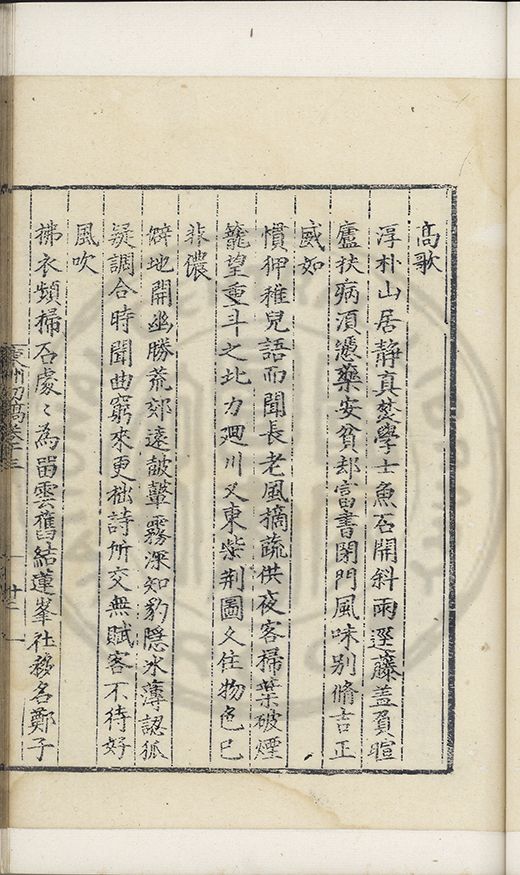 高歌
淳朴山居靜真葢學士魚石開斜兩逕藤盖負暄
廬扶病湏憑藥安貧却富書閉門風味別脩吉正
感如
慣狎稚兒語而聞長老風摘蔬供夜客掃葉破煙
籠望重斗之北力廻川又東柴荆圖久住物色已
非儂
僻地開幽勝荒郊遠皷鼙霧深知豹隱氷薄認狐
疑調合時聞曲窮來更拙詩所交無賦客不待好
風吹
拂衣頻掃石處〻為畱雲舊結蓮峯社移名鄭子